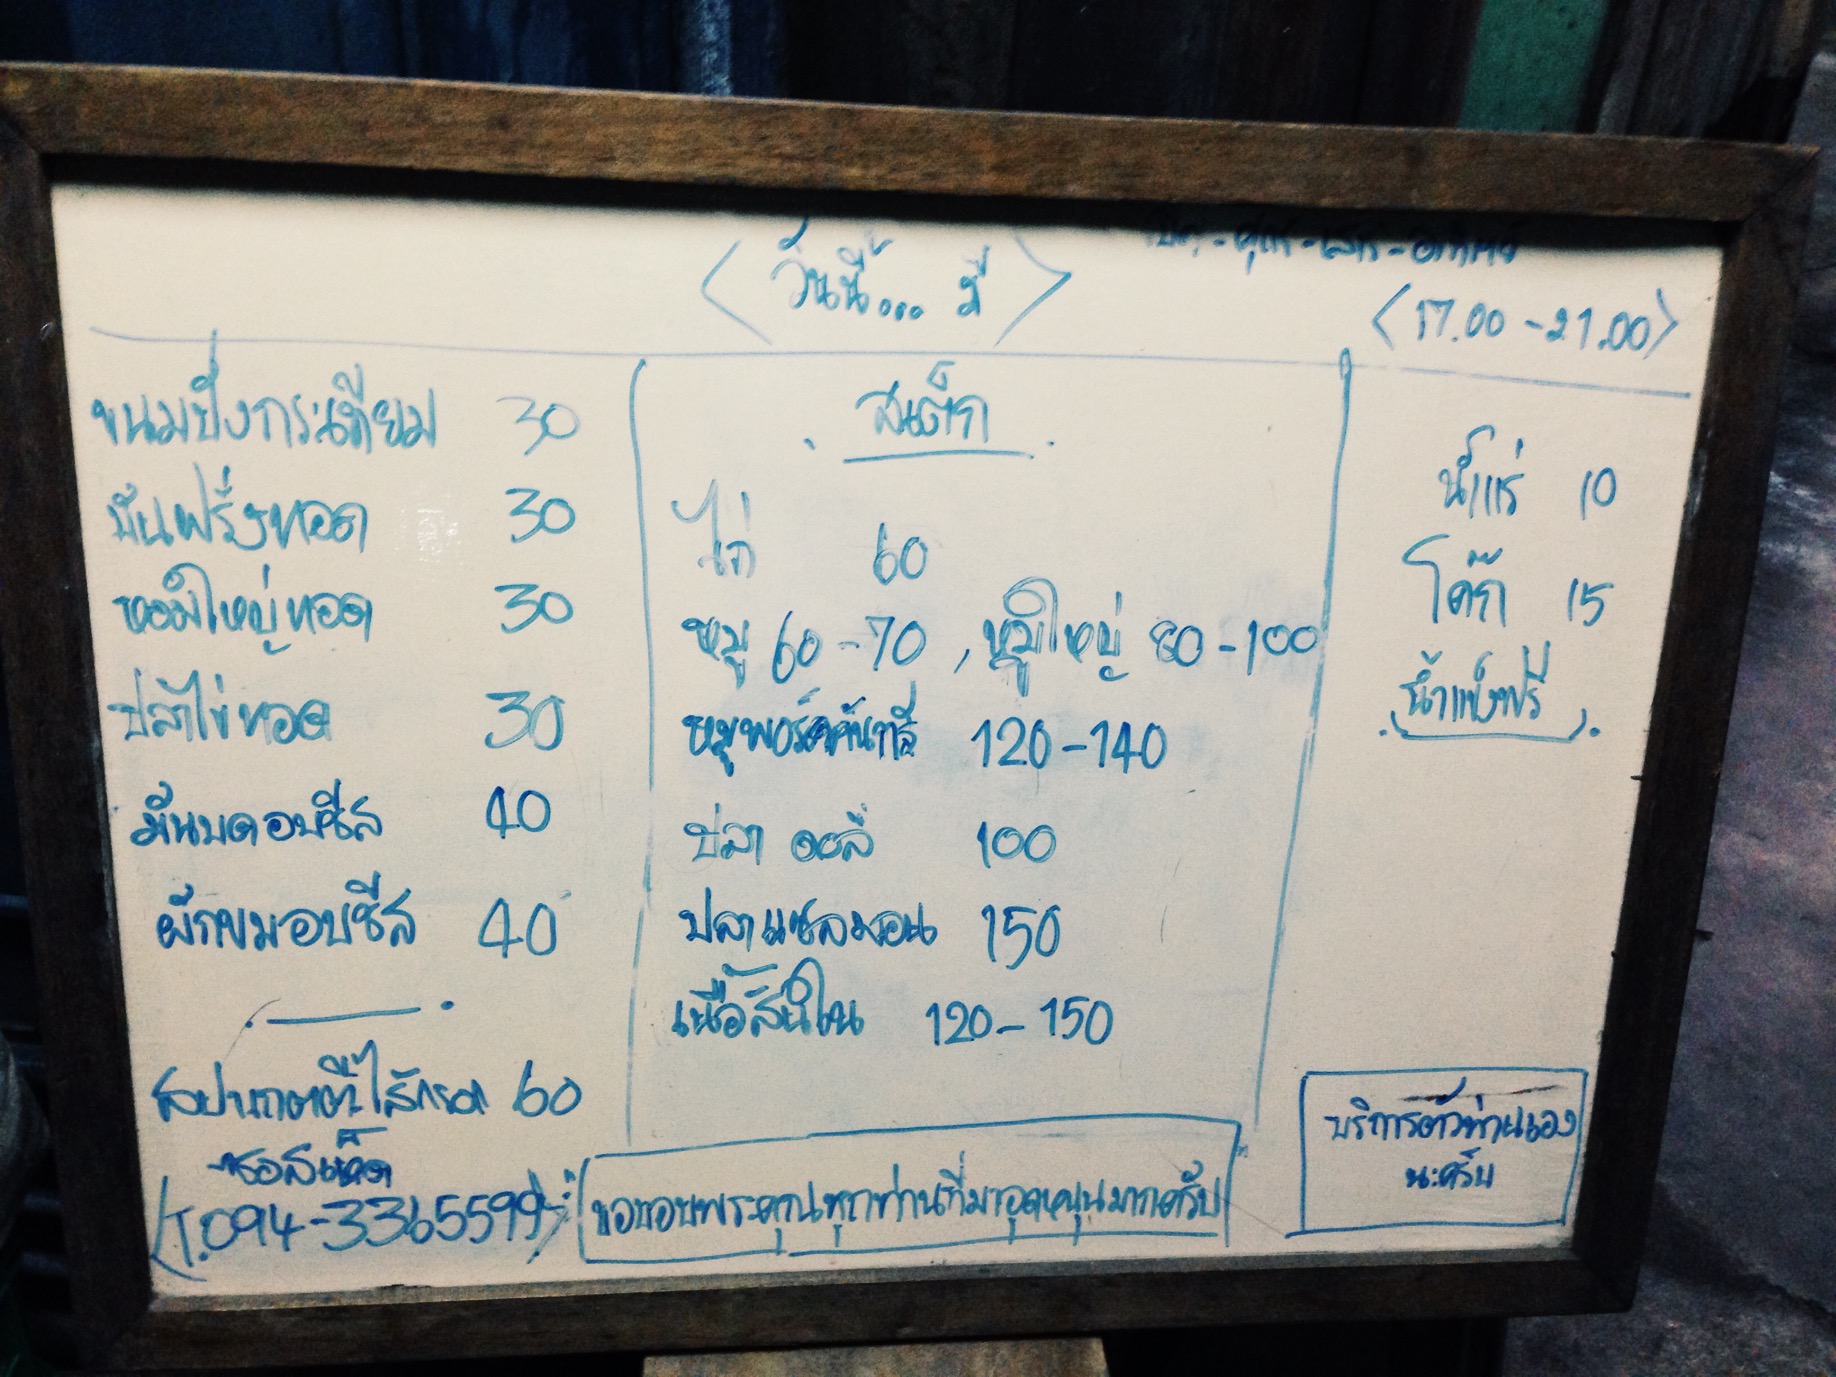 วันนี้... มี
- ศุกร์ - เสาร์ - อาทิตย์
<17.00 - 21.00>
ขนมปังกระเทียม 30
มันฝรั่งทอด 30
หอมใหญ่ทอด 30
ปลาไข่ทอด 30
มันบดอบชีส 40
ผักขมอบชีส 40
สปาเกตตี้ไส้กรอก 60
ซอสแค็ด
(T.094-3365599)
สเต็ก
ไก่ 60
หมู 60-70, หมูใหญ่ 80-100
หมูพอร์คคันทรี 120-140
ปลา ดอลี่ 100
ปลาแซลมอน 150
เนื้อสันใน 120-150
ขอขอบพระคุณทุกท่านที่มาอุดหนุนมากครับ
น้ำแร่ 10
โค๊ก 15
น้ำแข็งฟรี
บริการตัวท่านเอง
นะครับ